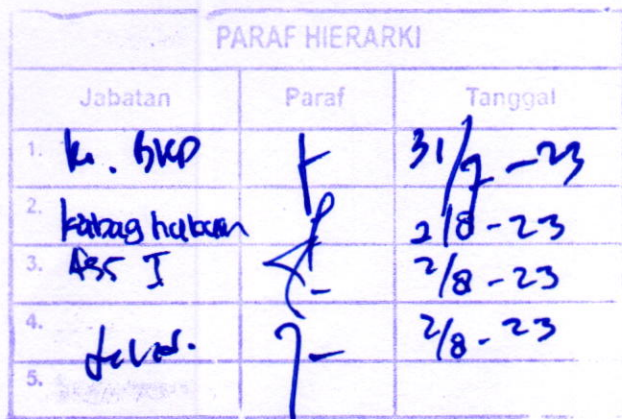 PARAF HIERARKI
Jabatan Paraf Tanggal
1. Ka. BKD 31/7-23
2. Kabag hukum 2/8-23
3. Ass I 2/8-23
4. 2/8-23
5.